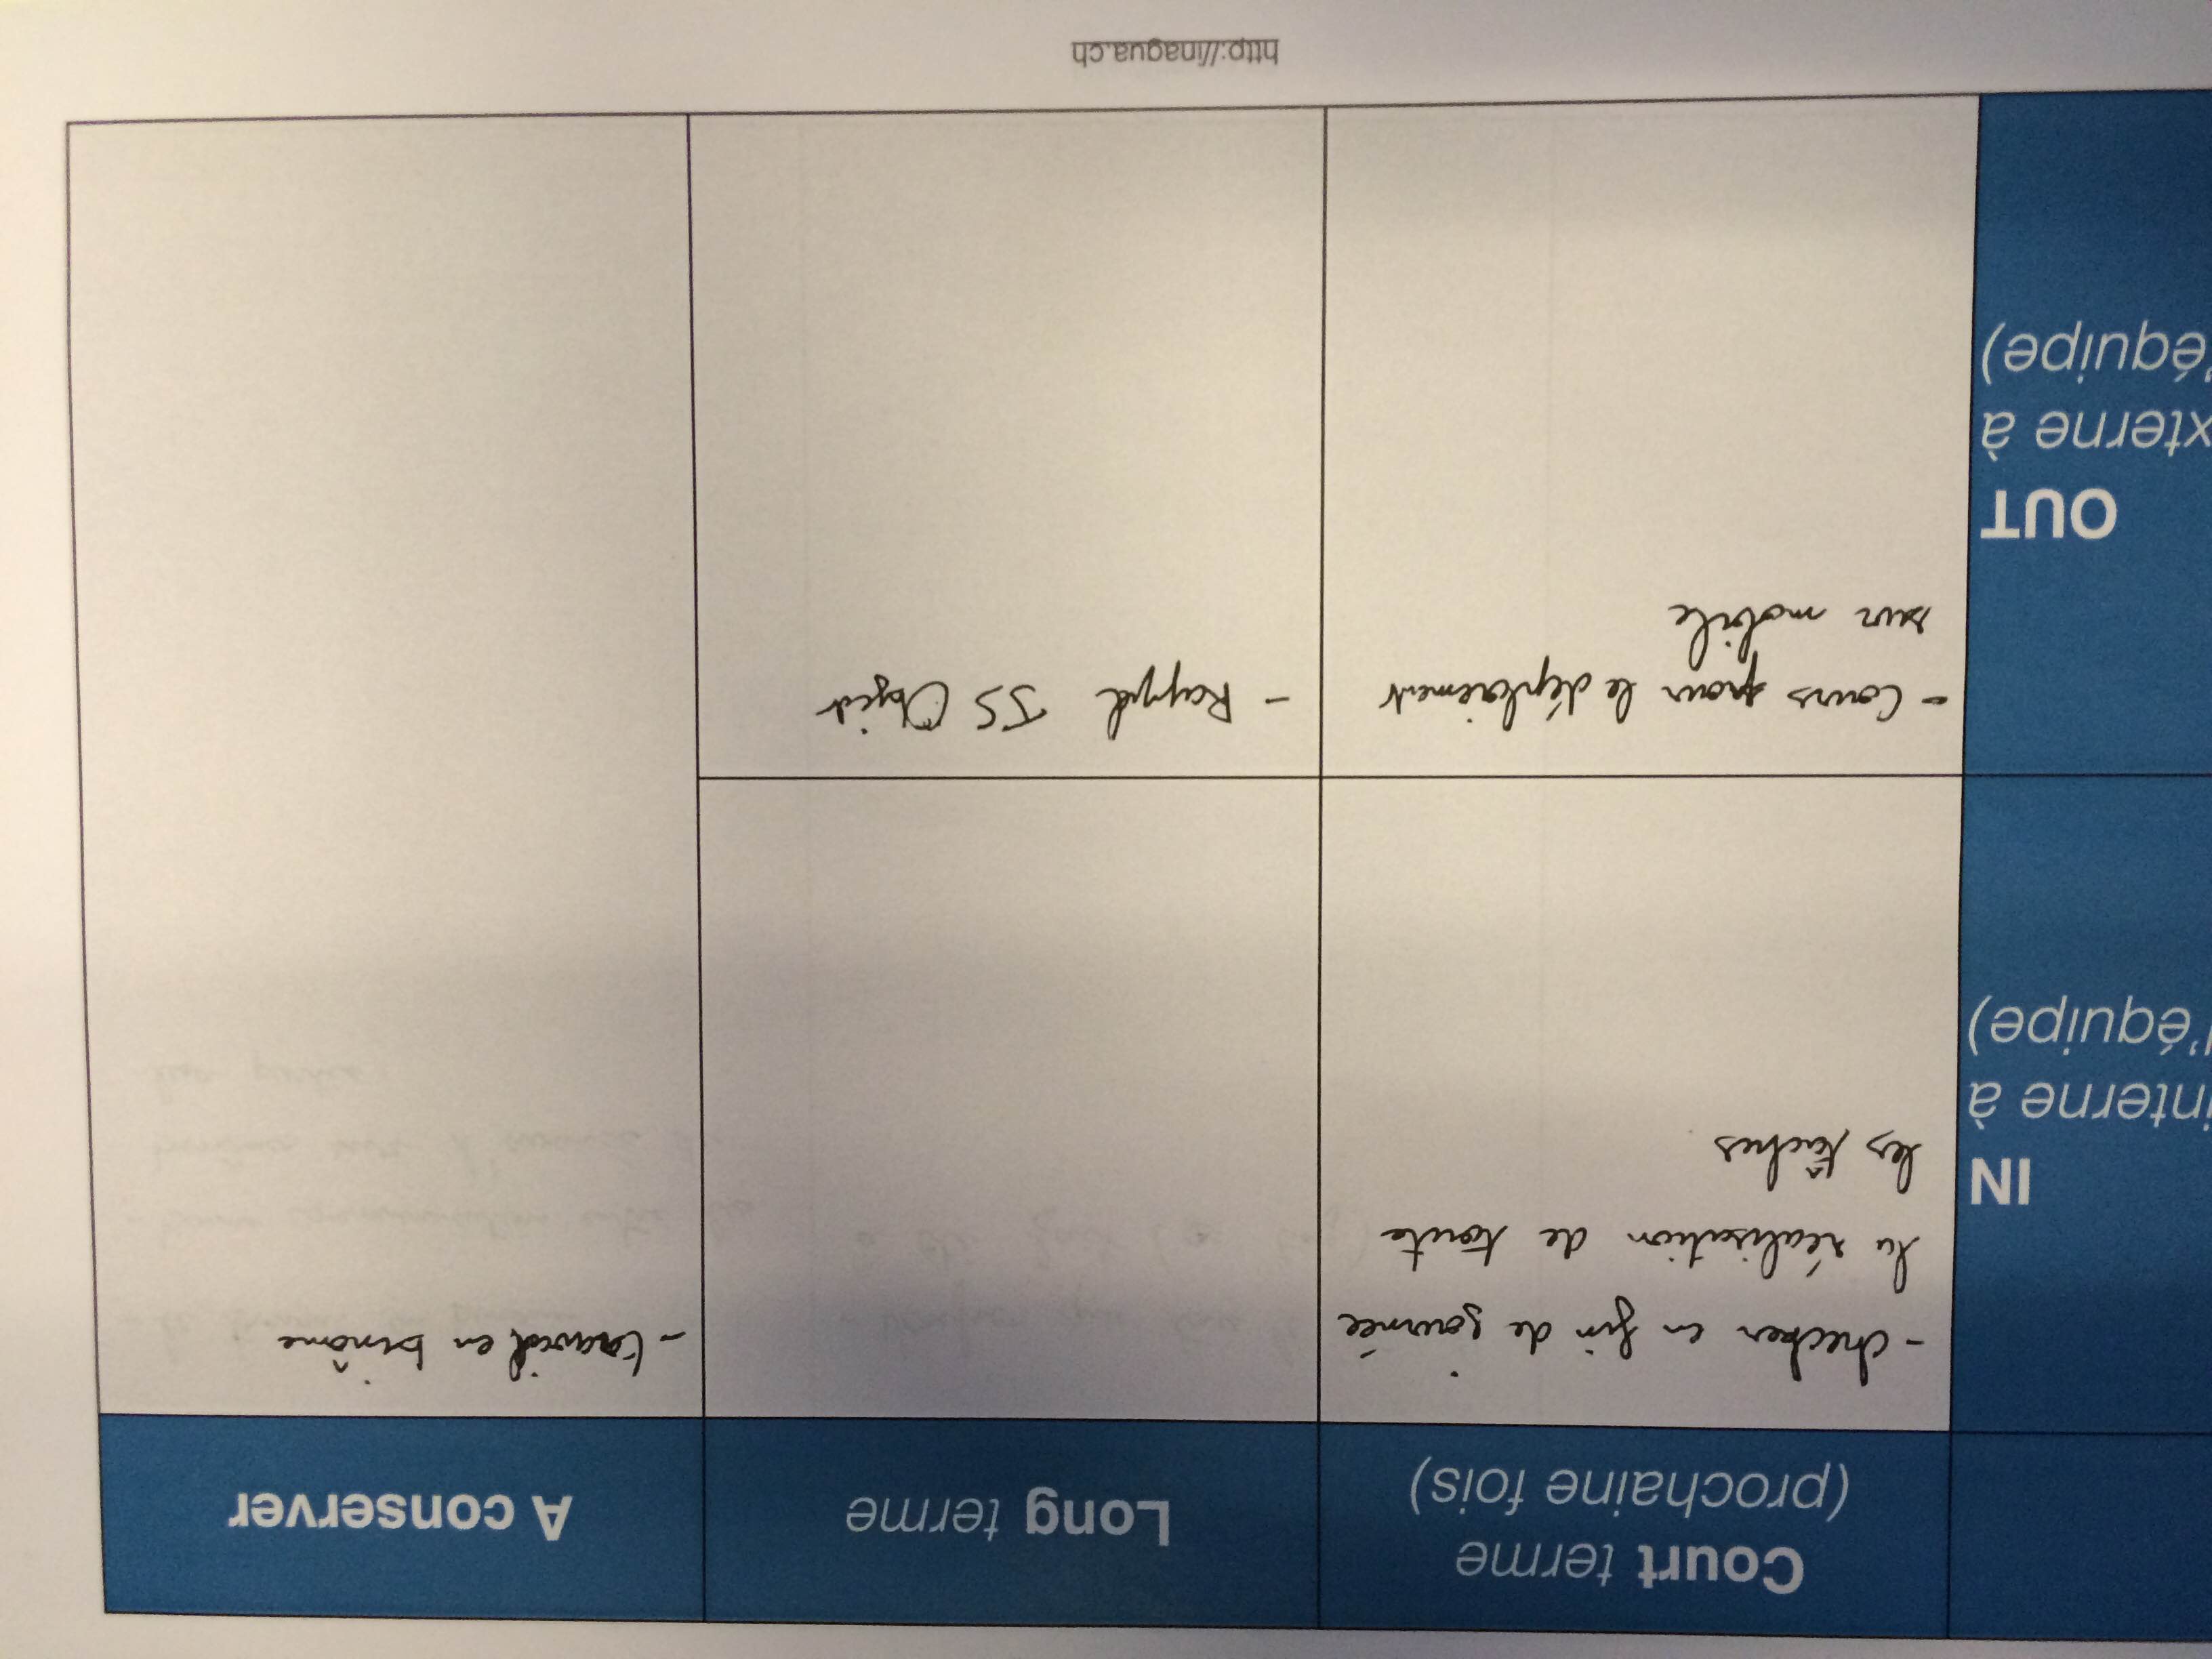 Court terme
(prochaine fois)
Long terme
A conserver
IN
interne à
l'équipe)
- checker en fin de journée
la réalisation de toute
les tâches
- travail en binôme
OUT
xterne à
'équipe)
- Cours pour le déploiement
sur mobile
- Rappel JS Object
http://inagua.ch